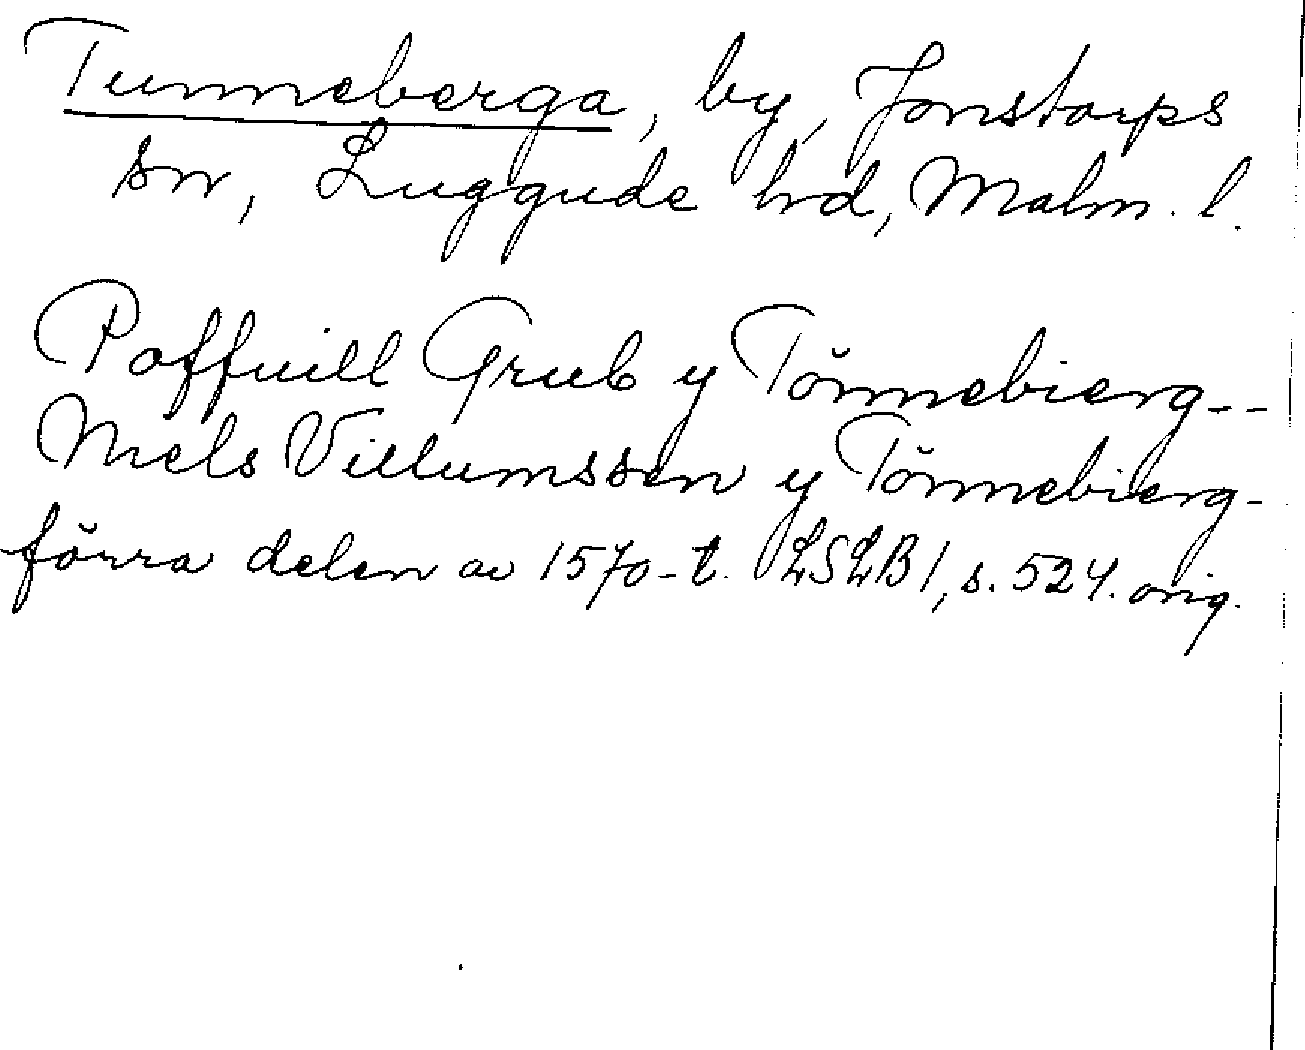 Tunneberga, by, Jonstorps
sn, Luggude hd, Malm. l.
Poffuill Grub y Tönnebierg--
Niels Villumssen y Tönnebierg-
förra delen av 1570-t. LSLB 1, s. 524. orig.